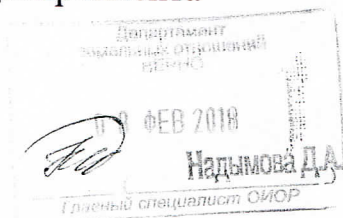 Департамент
земельных отношений
ФЕВ 2018
Надымова Д.А.
Главный специалист ОИОР